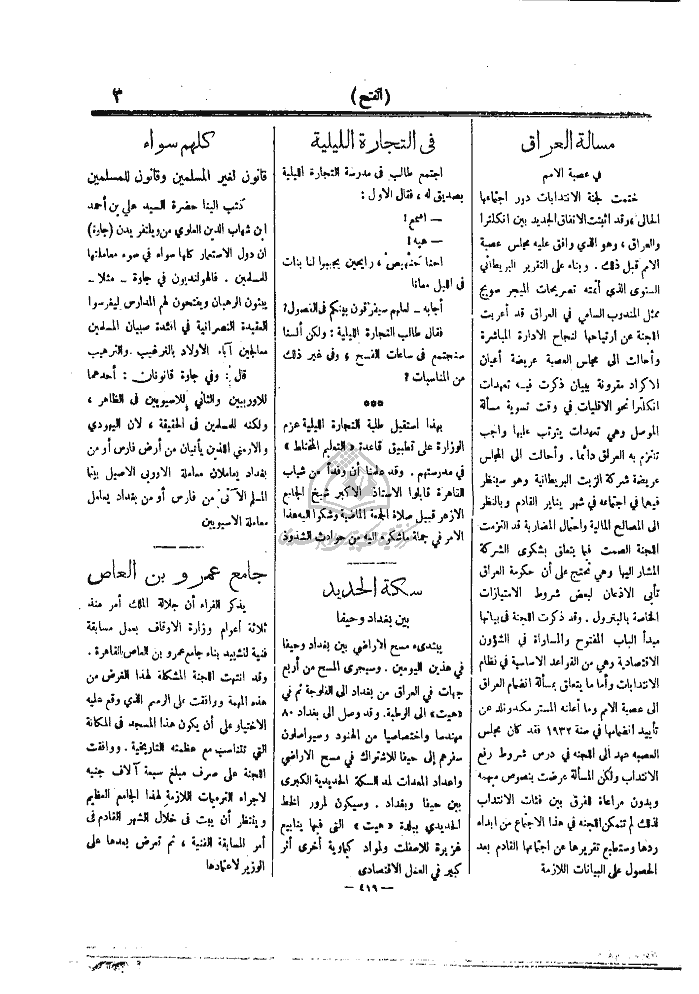 (الفتح)
٣
مسألة العراق
في عصبة الامم
ختمت لجنة الانتدابات دور اجتماعها
الحالي، وقد اثبتت الاتفاق الجديد بين انكلترا
والعراق، وهو الذي وافق عليه مجلس عصبة
الامم قبل ذلك. وبناء على التقرير البريطاني
السنوي الذي أتمته تصريحات الميجر سويج
ممثل المندوب السامي في العراق قد أعربت
اللجنة عن ارتياحها لنجاح الادارة المباشرة
وأحالت الى مجلس العصبة عريضة أعيان
الاكراد مقرونة ببيان ذكرت فيه تعهدات
انكلترا نحو الاقليات في وقت تسوية مسألة
الموصل وهي تعهدات يترتب عليها واجب
تلتزم به العراق دائما. وأحالت الى المجلس
عريضة شركة الزيت البريطانية وهو سينظر
فيها في اجتماعه في شهر يناير القادم وبالنظر
الى المصالح المالية واحتمال المضاربة قد التزمت
اللجنة الصمت فيما يتعلق بشكوى الشركة
المشار اليها وهي تحتج على أن حكومة العراق
تأبى الاذعان لبعض شروط الامتيازات
الخاصة بالبترول. وقد ذكرت اللجنة في بيانها
مبدأ الباب المفتوح والمساواة في الشؤون
الاقتصادية وهي من القواعد الاساسية في نظام
الانتدابات وأما ما يتعلق بمسألة انضمام العراق
الى عصبة الامم وما أعلنه المستر مكدونلد عن
تأييد انضمامها في سنة ١٩٣٢ فقد كان مجلس
العصبه عهد الى اللجنه في درس شروط رفع
الانتداب ولكن المسألة عرضت بنصوص مبهمه
وبدون مراعاة للفرق بين فئات الانتداب
لذلك لم تتمكن اللجنه في هذا الاجتماع من ابداء
ردها وستطيع تقريرها عن اجتماعها القادم بعد
الحصول على البيانات اللازمة
في التجارة الليلية
اجتمع طالب في مدرسة التجارة الليلية
بصديق له، فقال الاول:
— اسمع!
— هيه!
احنا حنهيص، رايحين يجيبوا لنا بنات
في الليل معانا
أجابه — لعلهم سيفرقون بينكم في الفصول؟
فقال طالب التجارة الليلية: ولكن ألسنا
سنجتمع في ساعات الفسح؛ وفي غير ذلك
من المناسبات؟
***
بهذا استقبل طلبة التجارة الليلية عزم
الوزارة على تطبيق قاعدة «التعليم المختلط»
في مدرستهم. وقد علمنا أن وفداً من شباب
القاهرة قابلوا الاستاذ الاكبر شيخ الجامع
الازهر قبيل صلاة الجمعة الماضية وشكوا اليه هذا
الامر في جملة ماشكوه اليه من حوادث الشذوذ
سكة الحديد
بين بغداد وحيفا
يبتدىء مسح الاراضي بين بغداد وحيفا
في هذين اليومين. وسيجرى المسح من أربع
جهات في العراق من بغداد الى الفلوجة ثم في
«هيت» الى الرطبة. وقد وصل الى بغداد ٨٠
مهندسا واختصاصيا من الهنود وسيواصلون
سفرهم إلى حيفا للاشتراك في مسح الاراضي
واعداد المعدات لمد السكة الحديدية الكبرى
بين حيفا وبغداد. وسيكون لمرور الخط
الحديدي ببلدة «هيت» التي فيها ينابيع
غزيرة للاسفلت ولمواد كيماوية أخرى أثر
كبير في العمل الاقتصادي
كلهم سواء
قانون لغير المسلمين وقانون للمسلمين
كتب الينا حضرة السيد علي بن أحمد
ابن شهاب الدين العلوي من ويلتفريدن (جاوة)
ان دول الاستعمار كلها سواء في سوء معاملتها
للمسلمين. فالهولنديون في جاوة — مثلا —
يبثون الرهبان ويفتحون لهم المدارس ليغرسوا
العقيدة النصرانية في افئدة صبيان المسلمين
معالجين آباء الاولاد بالترغيب والترهيب
قال: وفي جاوة قانونان: أحدهما
للاوربيين والثاني للاسيويين في الظاهر،
ولكنه للمسلمين في الحقيقة، لان اليهودي
والارمني اللذين يأتيان من أرض فارس أو من
بغداد يعاملان معاملة الاوربي الاصيل بينما
المسلم الآتي من فارس أو من بغداد يعامل
معاملة الاسيويين
جامع عمرو بن العاص
يذكر القراء أن جلالة الملك أمر منذ
ثلاثة أعوام وزارة الاوقاف بعمل مسابقة
فنية لتشييد بناء جامع عمرو بن العاص بالقاهرة.
وقد انتهت اللجنة المشكلة لهذا الغرض من
هذه المهمة ووافقت على الرسم الذي وقع عليه
الاختيار على أن يكون هذا المسجد في المكانة
التي تتناسب مع عظمته التاريخية. ووافقت
اللجنة على صرف مبلغ سبعة آلاف جنيه
لاجراء الترميمات اللازمة لهذا الجامع العظيم
وينتظر أن يبت في خلال الشهر القادم في
أمر المسابقة الفنية، ثم تعرض بعدها على
الوزير لاعتمادها
— ٤١٩ —